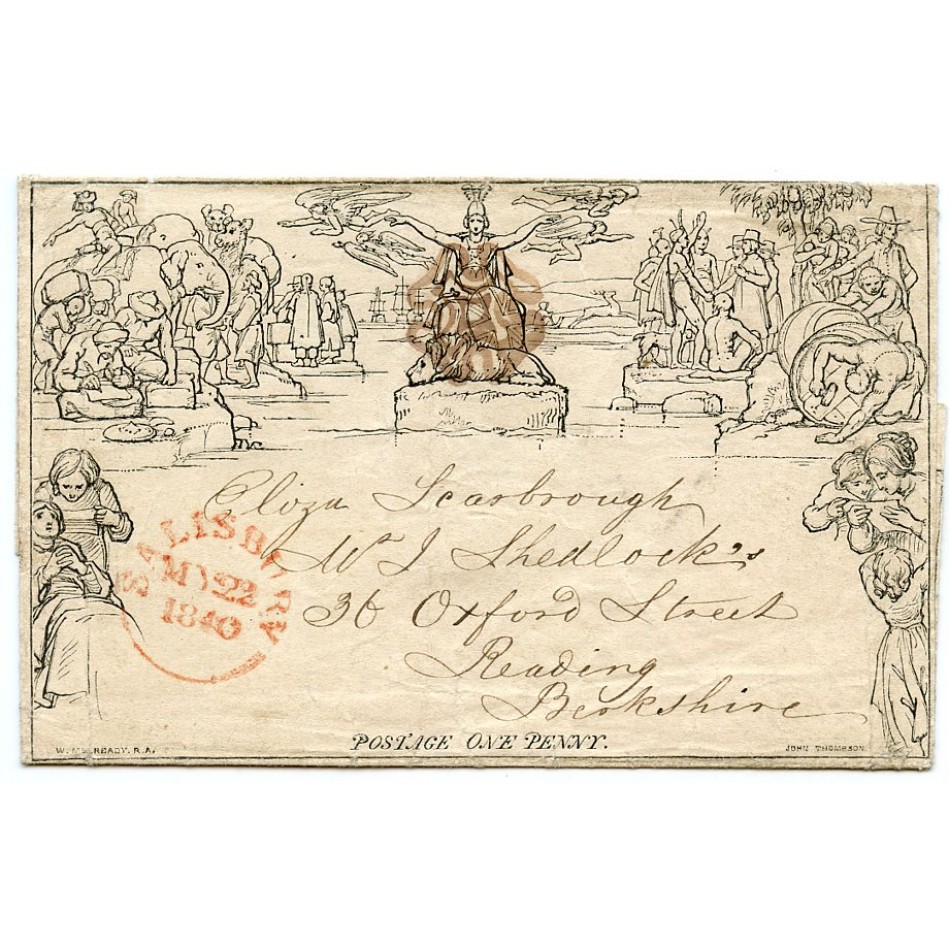 SALISBURY
MY 22
1840
Eliza Scarbrough
W J Shedlock's
36 Oxford Street
Reading
Berkshire
POSTAGE ONE PENNY.
W. MULREADY. R.A.
JOHN THOMPSON